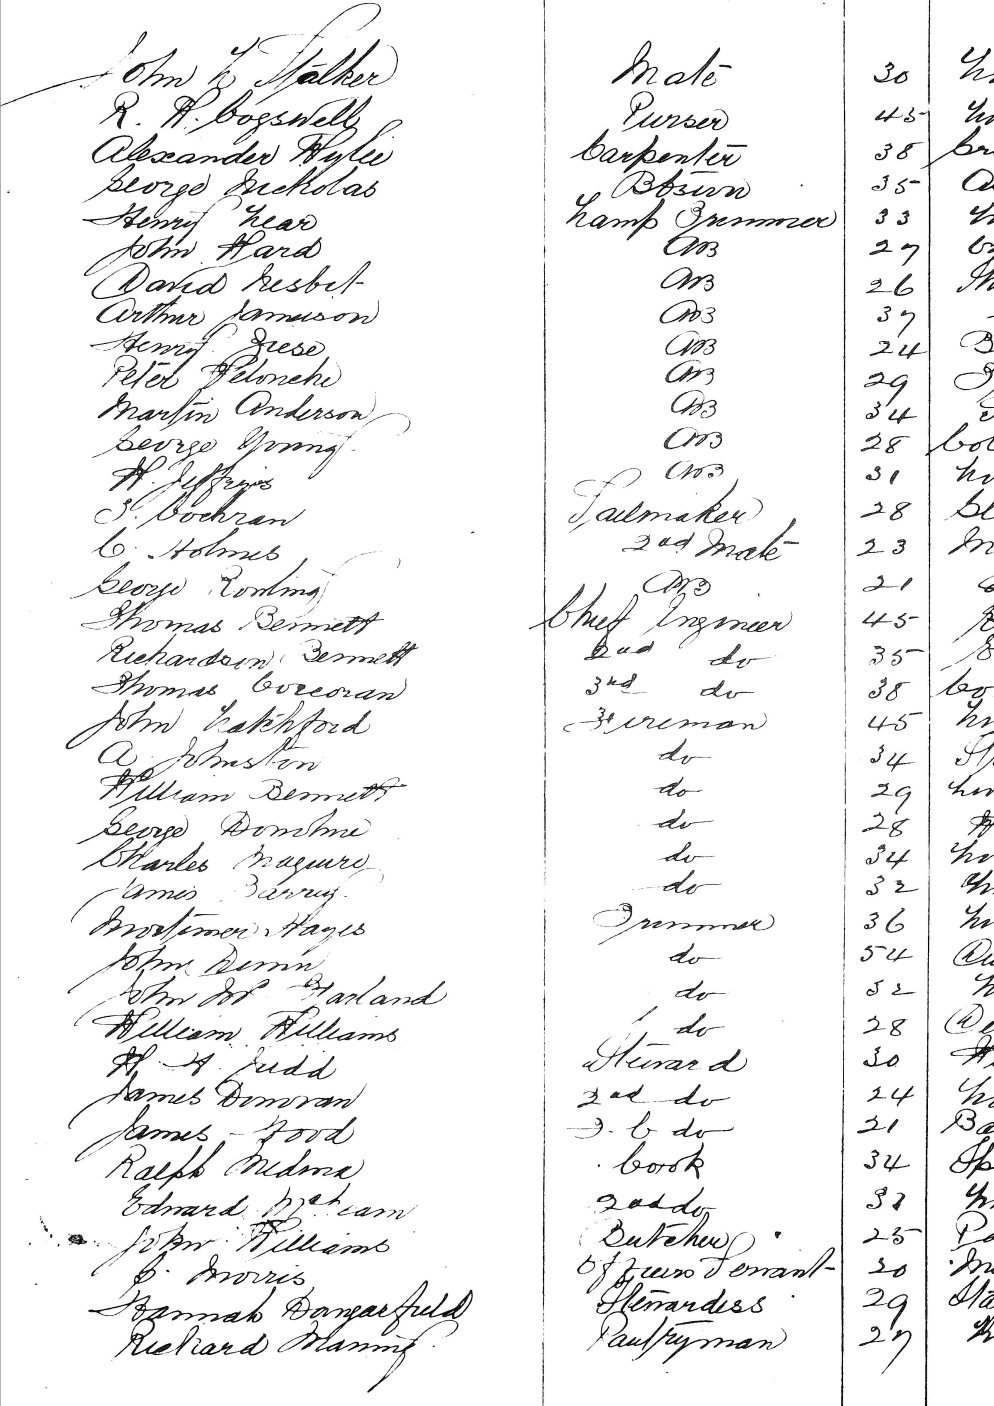 John L Stalker Mate 30
R. H. Cogswell Purser 45
Alexander Wylie Carpenter 38
George Nickolas Bosun 35
Henry Lear Lamp Trimmer 33
John Ward AB 27
David Nesbit AB 26
Arthur Jameison AB 37
Henry Friese AB 24
Peter AB 29
Martin Anderson AB 34
George Young AB 28 Col
H. Jeffries AB 31
T. Cochran Sailmaker 28
C. Holmes 2nd Mate 23
George Rowling AB 21
Thomas Bennett Chief Engineer 45
Richardson Bennett 2nd do 35
Thomas Corcoran 3rd do 38 Co
John Latchford Fireman 45
A Johnston do 34
William Bennett do 29
George Donohue do 28
Charles Maguire do 34
James Barry do 32
Mortimer Hayes Trimmer 36
John do 54
John Mc Farland do 32
William Williams do 28
H. H. Judd Steward 30
James Donovan 2nd do 24
James Wood 3. C do 21 Ba
Ralph Medina Cook 34 Sp
Edward 2nd do
John Williams Butcher 25
J. Morris Officers Servant
Hannah Dangarfield Stewardess 29
Richard Manning Pantryman 27